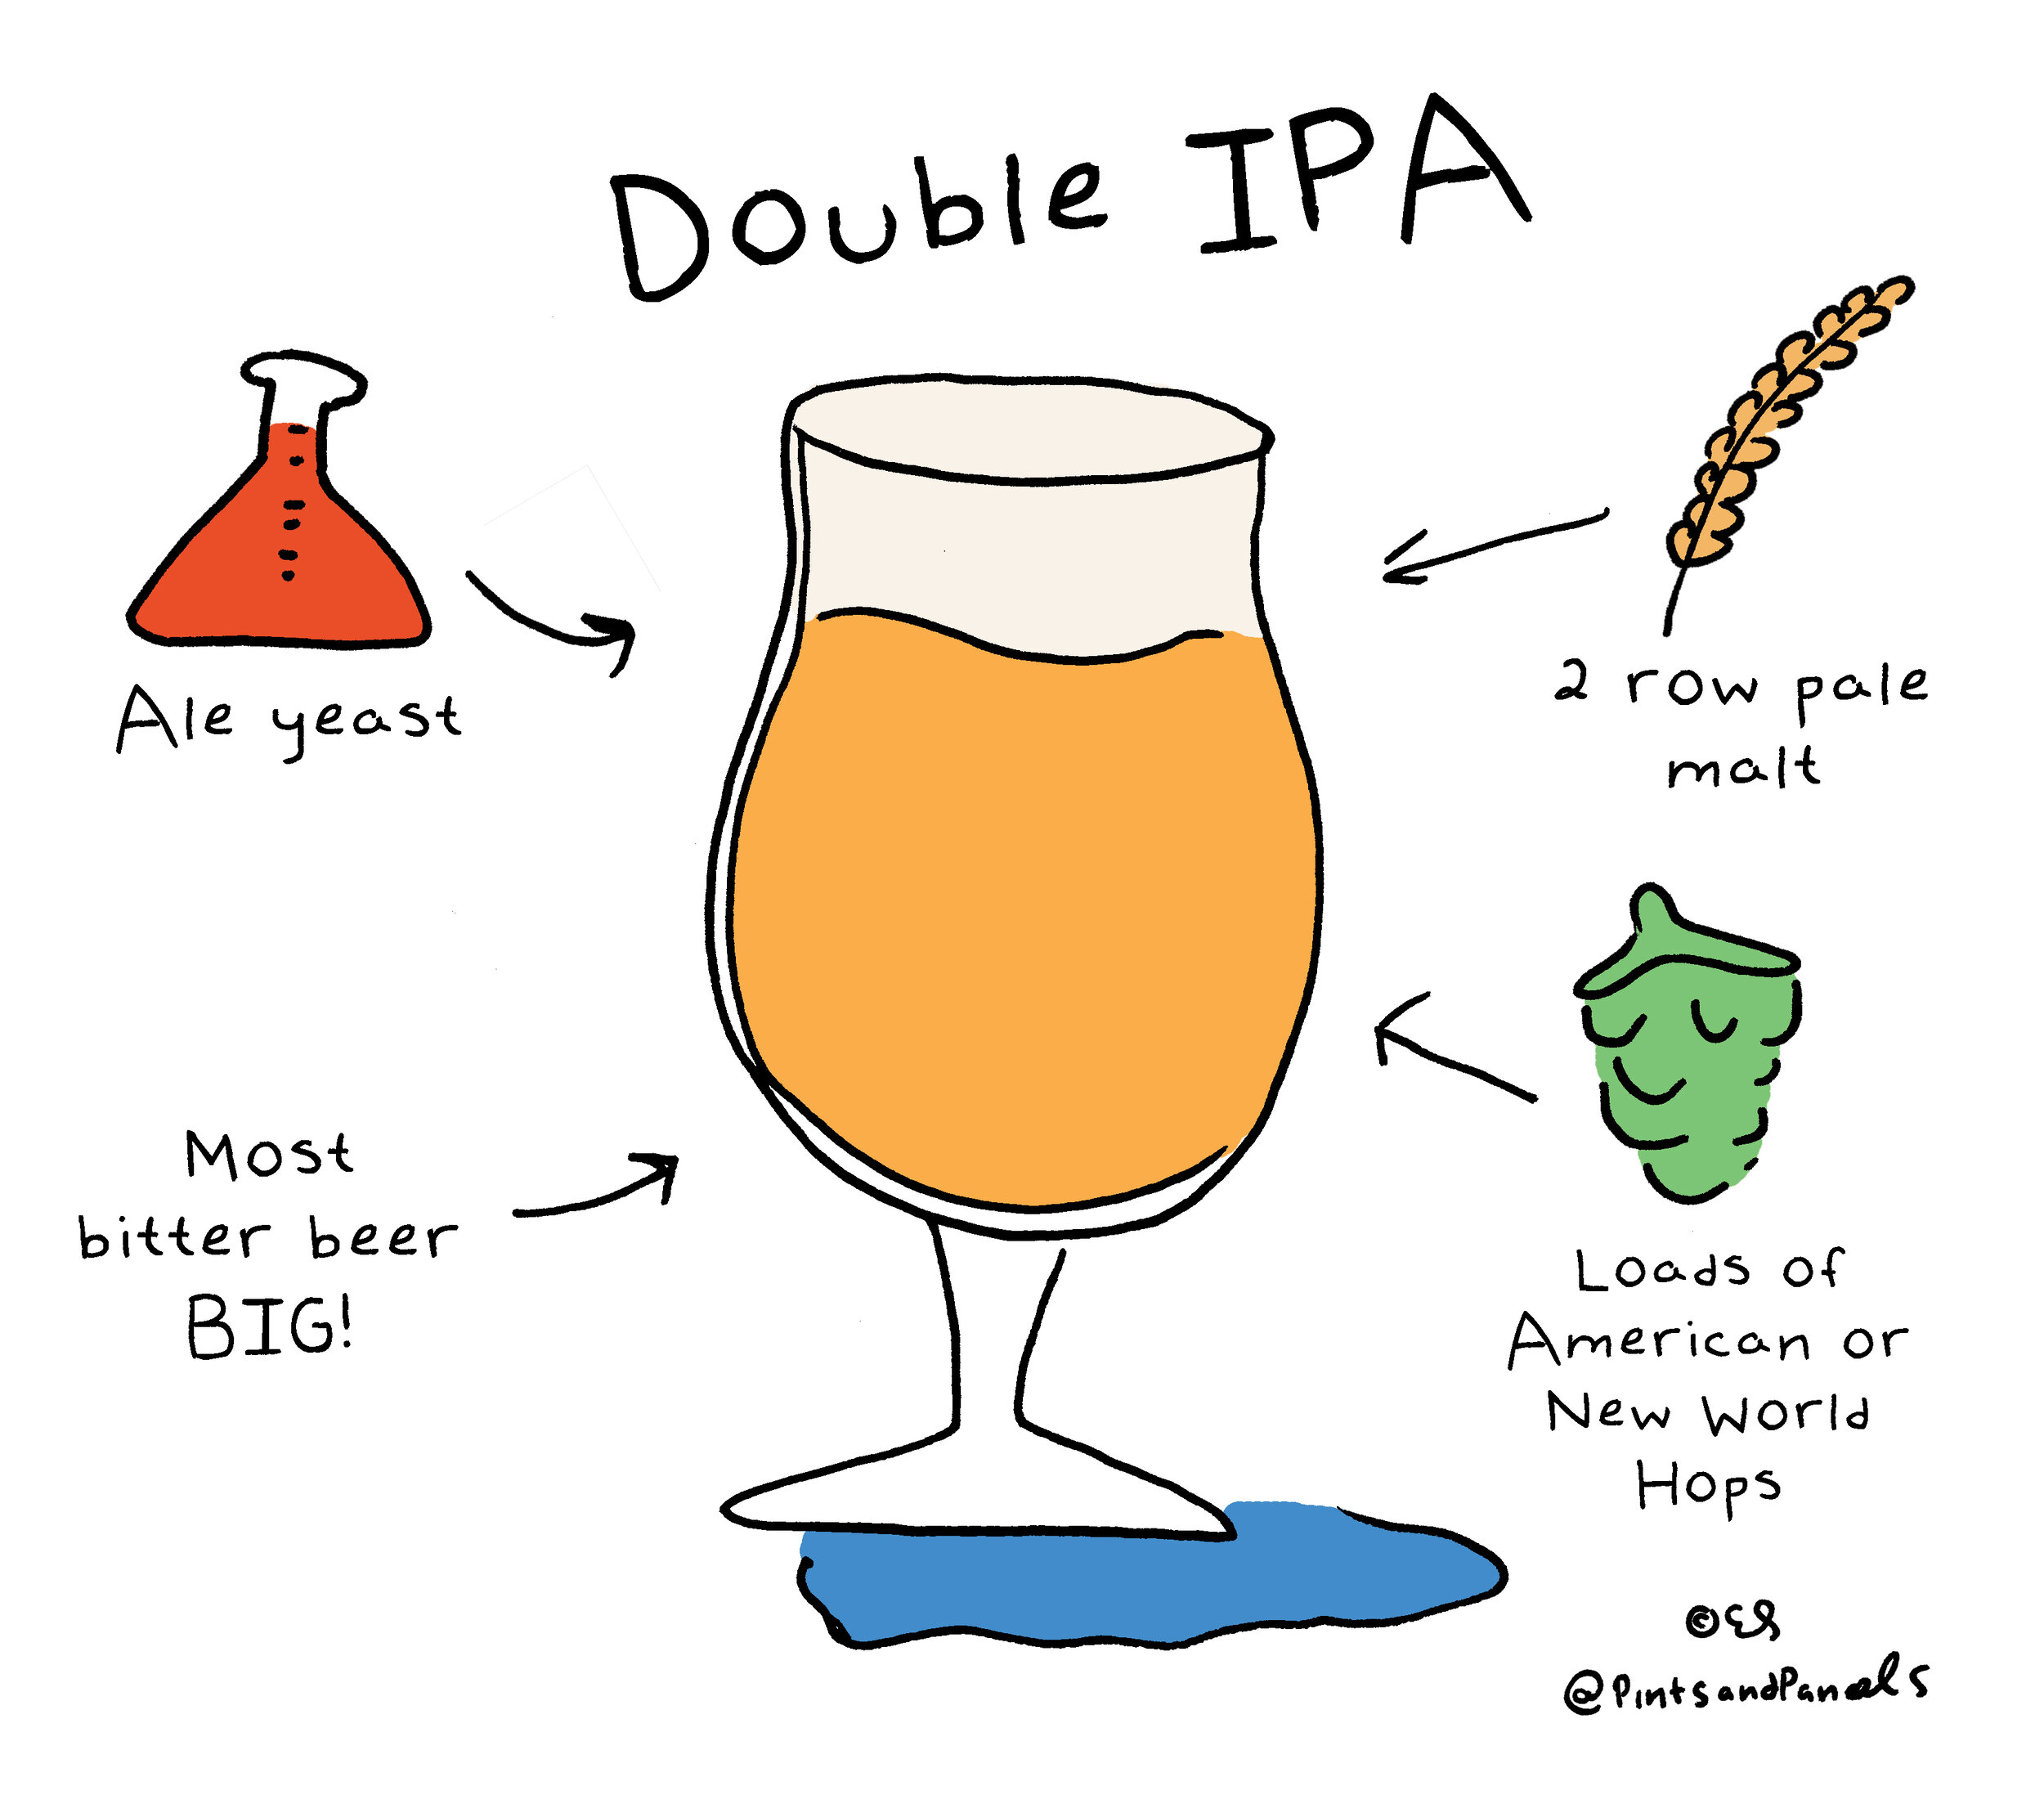 Double IPA
Ale yeast
2 row pale
malt
Most
bitter beer
BIG!
Loads of
American or
New World
Hops
©ES
@PintsandPanels